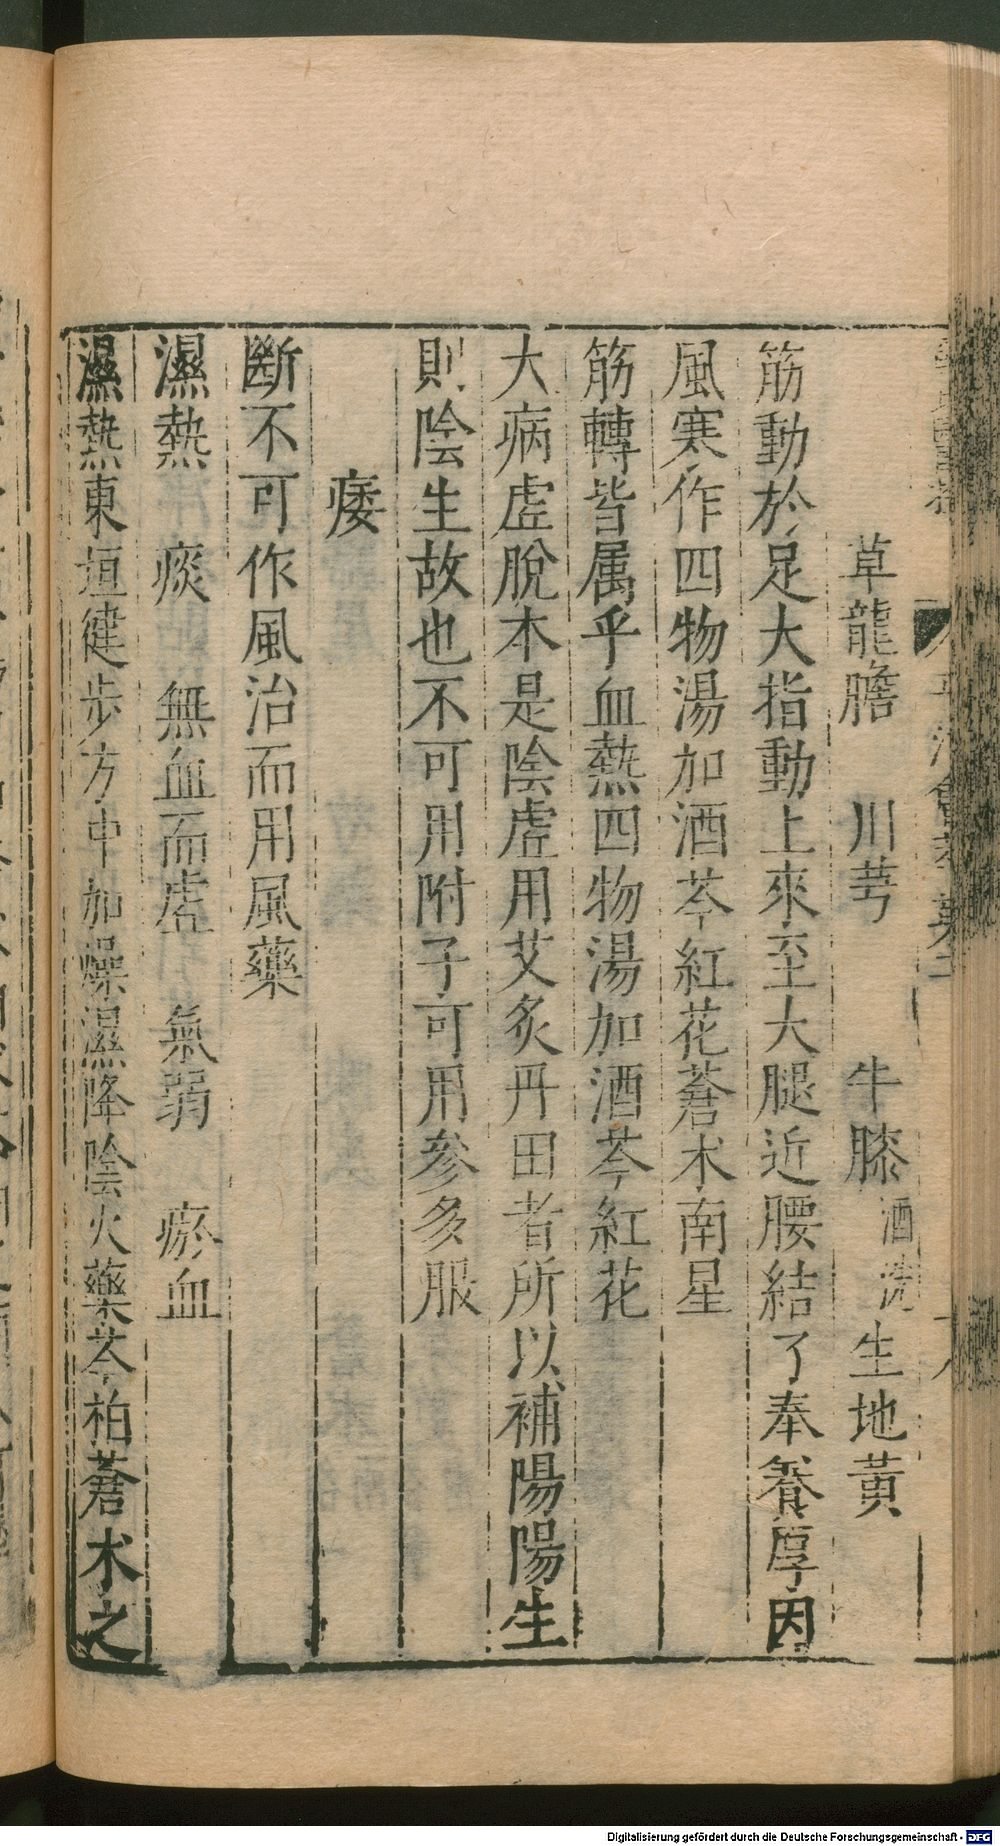 草龍膽　川芎　牛膝酒洗　生地黃
筋動於足大指動上來至大腿近腰結了奉養厚因
風寒作四物湯加酒芩紅花蒼术南星
筋轉皆属乎血熱四物湯加酒芩紅花
大病虛脫本是陰虛用艾炙丹田者所以補陽陽生
則陰生故也不可用附子可用參多服
痿
斷不可作風治而用風藥
濕熱　痰　無血而虛　氣弱　瘀血
濕熱東垣健步方中加燥濕降陰火藥芩柏蒼术之
Digitalisierung gefördert durch die Deutsche Forschungsgemeinschaft - DFG